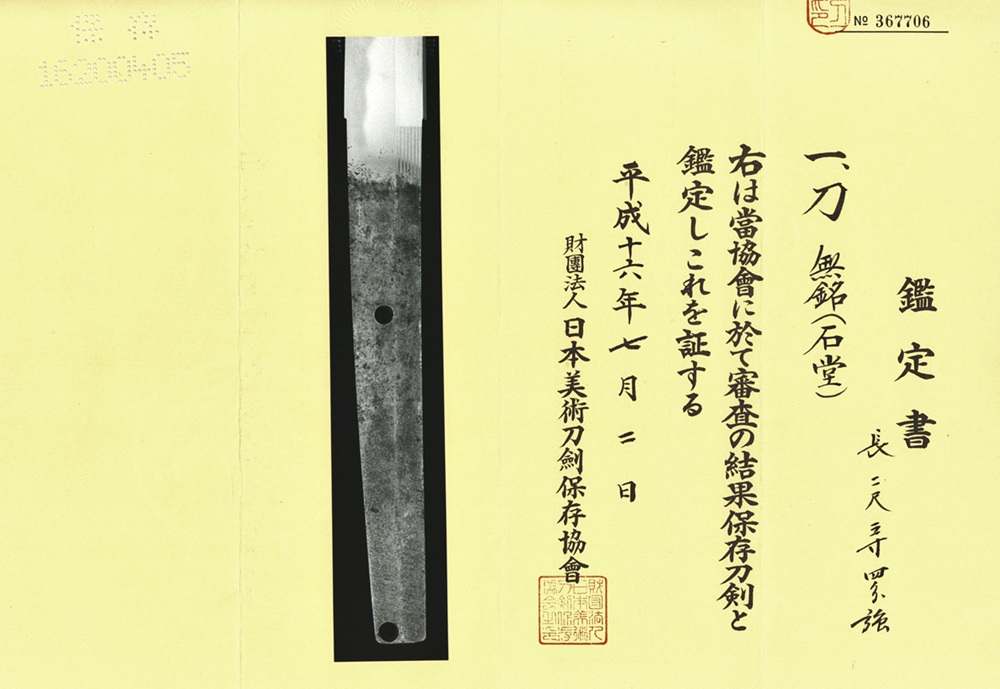 № 367706
鑑定書
長 二尺三寸四分強
一、刀 無銘(石堂)
右は當協會に於て審査の結果保存刀剣と
鑑定しこれを証する
平成十六年七月二日
財團法人 日本美術刀劍保存協會
保存
16200405